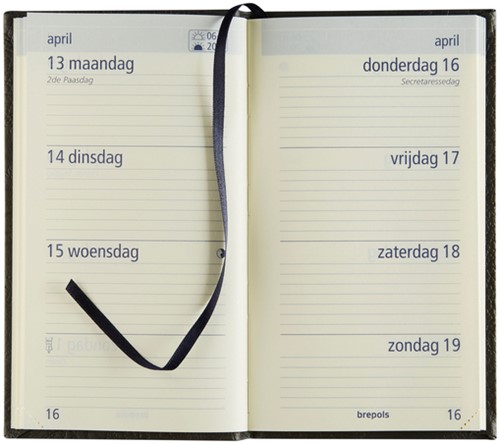 april
06
20
13 maandag
2de Paasdag
14 dinsdag
15 woensdag
16
april
donderdag 16
Secretaressedag
vrijdag 17
zaterdag 18
zondag 19
brepols
16